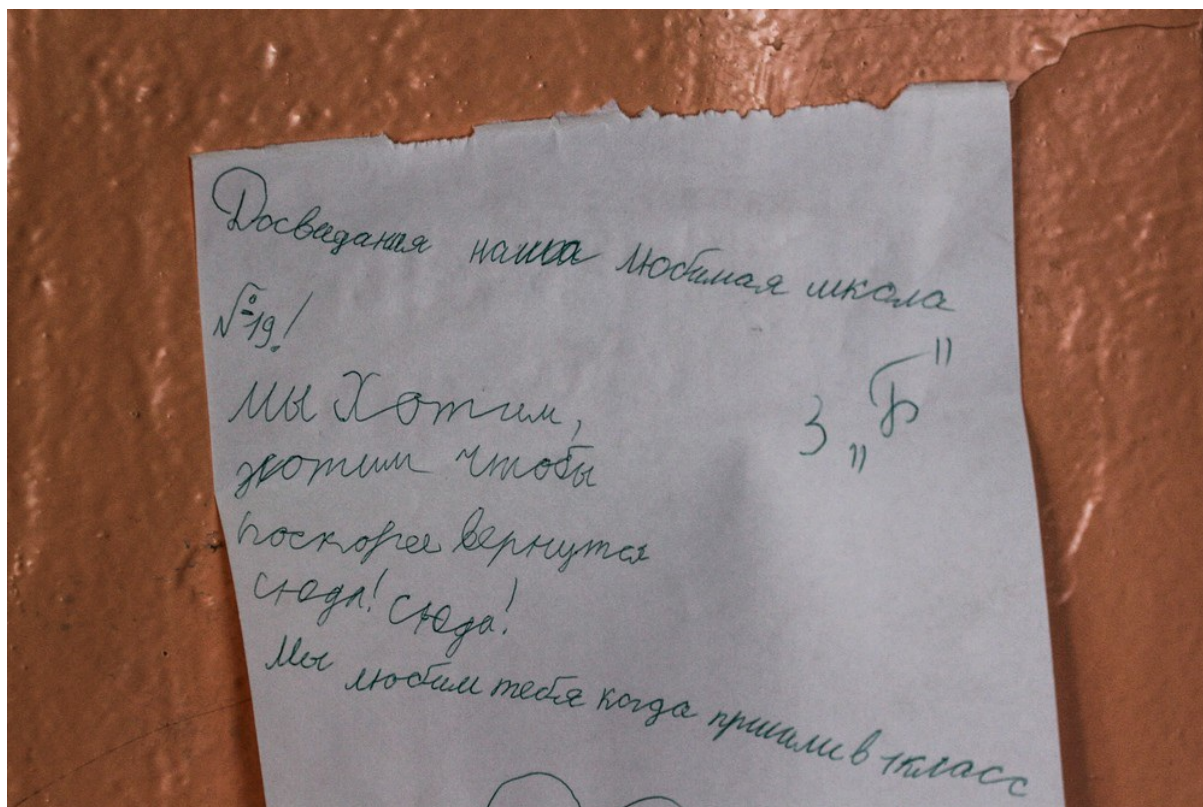 Досвидания наша любимая школа
№19!
3 „Б"
Мы Хотим,
хотим чтобы
поскорее вернутся
сюда! сюда!
Мы любим тебя когда пришли в 1класс